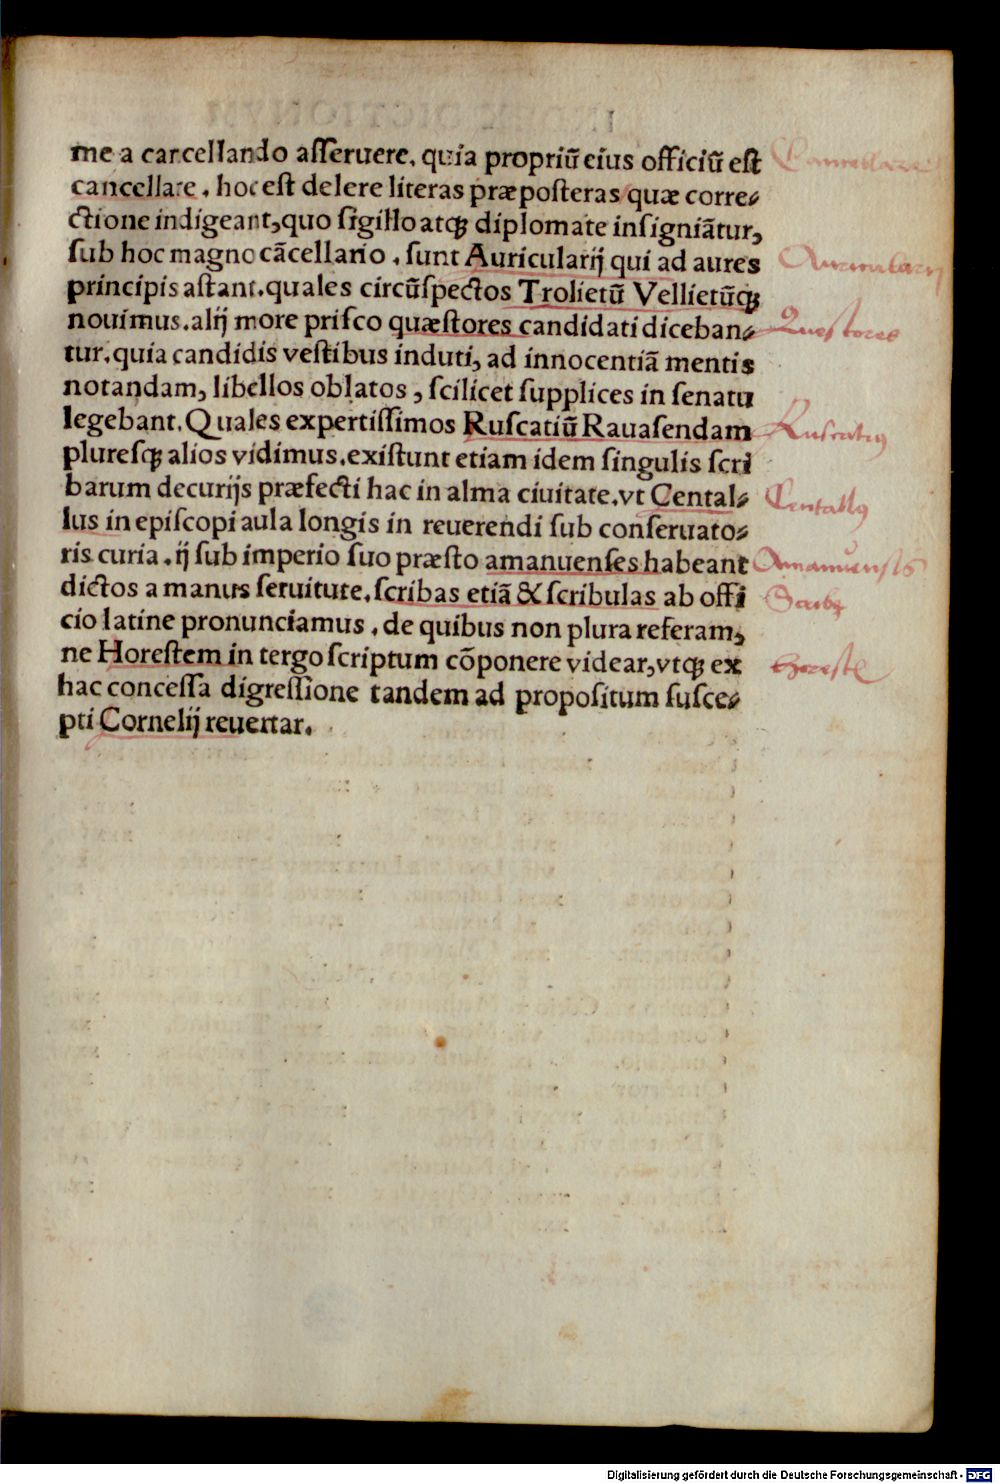 me a carcellando aſſeruere, quia propriū eius officiū eſt
cancellare, hoc eſt delere literas præpoſteras quæ corre-
ctione indigeant, quo ſigillo atqꝫ diplomate inſigniātur,
ſub hoc magno cācellario, ſunt Auricularij qui ad aures
principis aſtant. quales circūſpectos Trolietū Vellietūqꝫ
nouimus. alij more priſco quæſtores candidati diceban-
tur, quia candidis veſtibus induti, ad innocentiā mentis
notandam, libellos oblatos, ſcilicet ſupplices in ſenatu
legebant. Quales expertiſſimos Ruſcatiū Rauaſendam
pluresqꝫ alios vidimus. exiſtunt etiam idem ſingulis ſcri
barum decurijs præfecti hac in alma ciuitate, vt Cental-
lus in epiſcopi aula longis in reuerendi ſub conſeruato-
ris curia. ij ſub imperio ſuo præſto amanuenſes habeant
dictos a manus ſeruitute, ſcribas etiā & ſcribulas ab offi
cio latine pronunciamus, de quibus non plura referam,
ne Horeſtem in tergo ſcriptum cōponere videar, vtqꝫ ex
hac conceſſa digreſſione tandem ad propoſitum ſuſce-
pti Cornelij reuertar.
Cancellare
Auricularij
Questores
Ruscatius
Centallus
Amanuensis
Scribe
Horeste
Digitalisierung gefördert durch die Deutsche Forschungsgemeinschaft - DFG